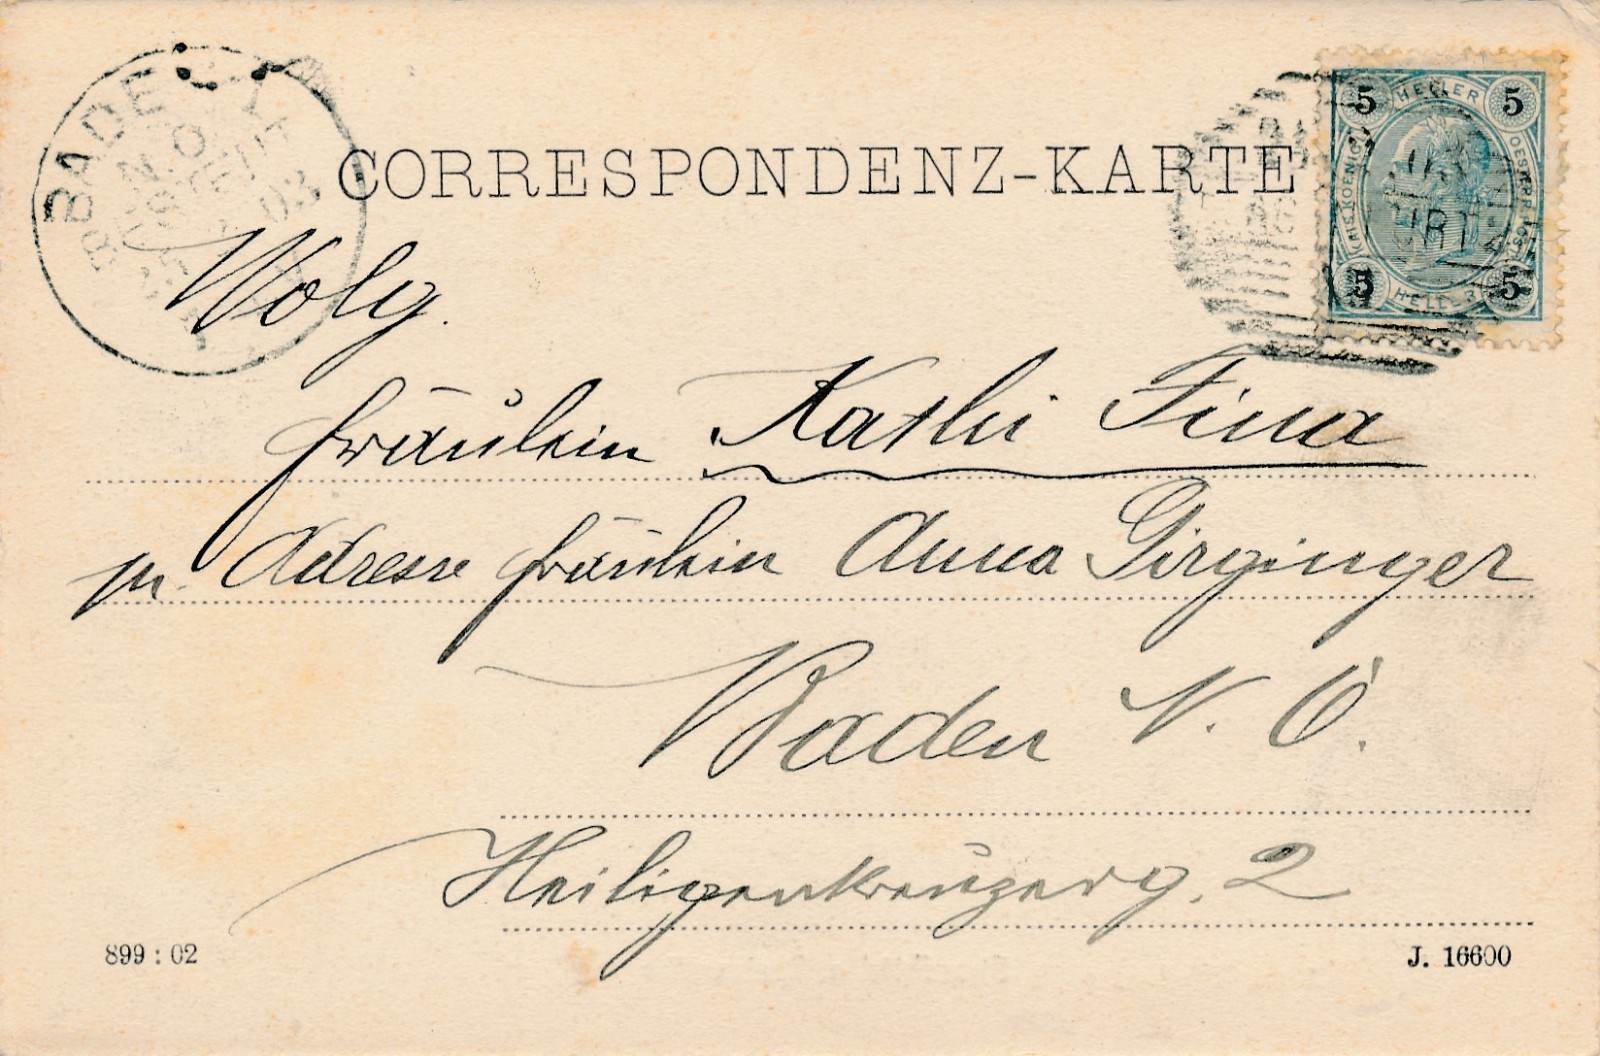 CORRESPONDENZ-KARTE
5 HELLER 5
KAIS. KOENIGL. OESTERR. POST
5 HELLER 5
BADEN
03
Wolg.
Fräulein Kathi Fina
pr. Adresse Fräulein Anna Girginger
Baden N. Ö.
Heiligenkreuzerg. 2
899 : 02
J. 16600